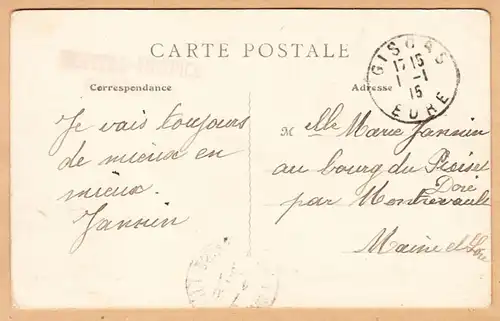 CARTE POSTALE
Correspondance
Adresse
GISORS
17 15
1 -1
15
EURE
Je vais toujours
de mieux en
mieux.
Jansien
Melle Marie Jansien
au bourg du
Doré
par Montrevault
Maine et Loire